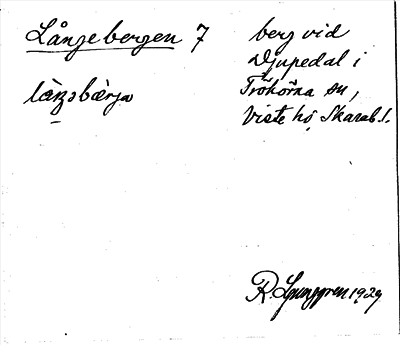 Långebergen 7
låŋəbærja
berg vid
Djupedal i
Trökörna sn,
Viste hd Skarab. l.
R. Ljunggren 1929